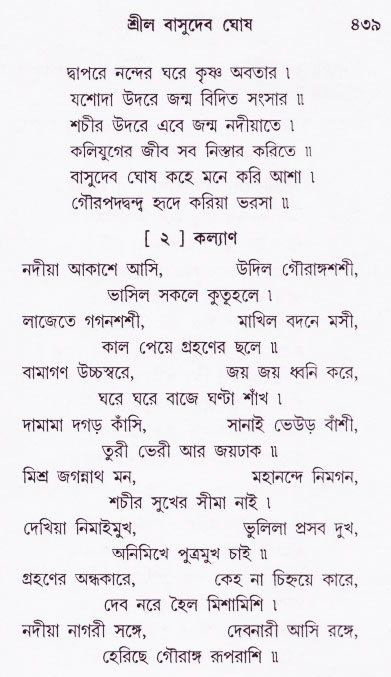 শ্রীল বাসুদেব ঘোষ ৪৩৯
দ্বাপরে নন্দের ঘরে কৃষ্ণ অবতার ৷
যশোদা উদরে জন্ম বিদিত সংসার ৷৷
শচীর উদরে এবে জন্ম নদীয়াতে ৷
কলিযুগের জীব সব নিস্তার করিতে ৷৷
বাসুদেব ঘোষ কহে মনে করি আশা ৷
গৌরপদদ্বন্দ্ব হৃদে করিয়া ভরসা ৷৷
[ ২ ] কল্যাণ
নদীয়া আকাশে আসি, উদিল গৌরাঙ্গশশী,
ভাসিল সকলে কুতূহলে ৷
লাজেতে গগনশশী, মাখিল বদনে মসী,
কাল পেয়ে গ্রহণের ছলে ৷৷
বামাগণ উচ্চস্বরে, জয় জয় ধ্বনি করে,
ঘরে ঘরে বাজে ঘণ্টা শাঁখ ৷
দামামা দগড় কাঁসি, সানাই ভেউড় বাঁশী,
তুরী ভেরী আর জয়ঢাক ৷৷
মিশ্র জগন্নাথ মন, মহানন্দে নিমগন,
শচীর সুখের সীমা নাই ৷
দেখিয়া নিমাইমুখ, ভুলিলা প্রসব দুখ,
অনিমিখে পুত্রমুখ চাই ৷৷
গ্রহণের অন্ধকারে, কেহ না চিহ্নয়ে কারে,
দেব নরে হৈল মিশামিশি ৷
নদীয়া নাগরী সঙ্গে, দেবনারী আসি রঙ্গে,
হেরিছে গৌরাঙ্গ রূপরাশি ৷৷